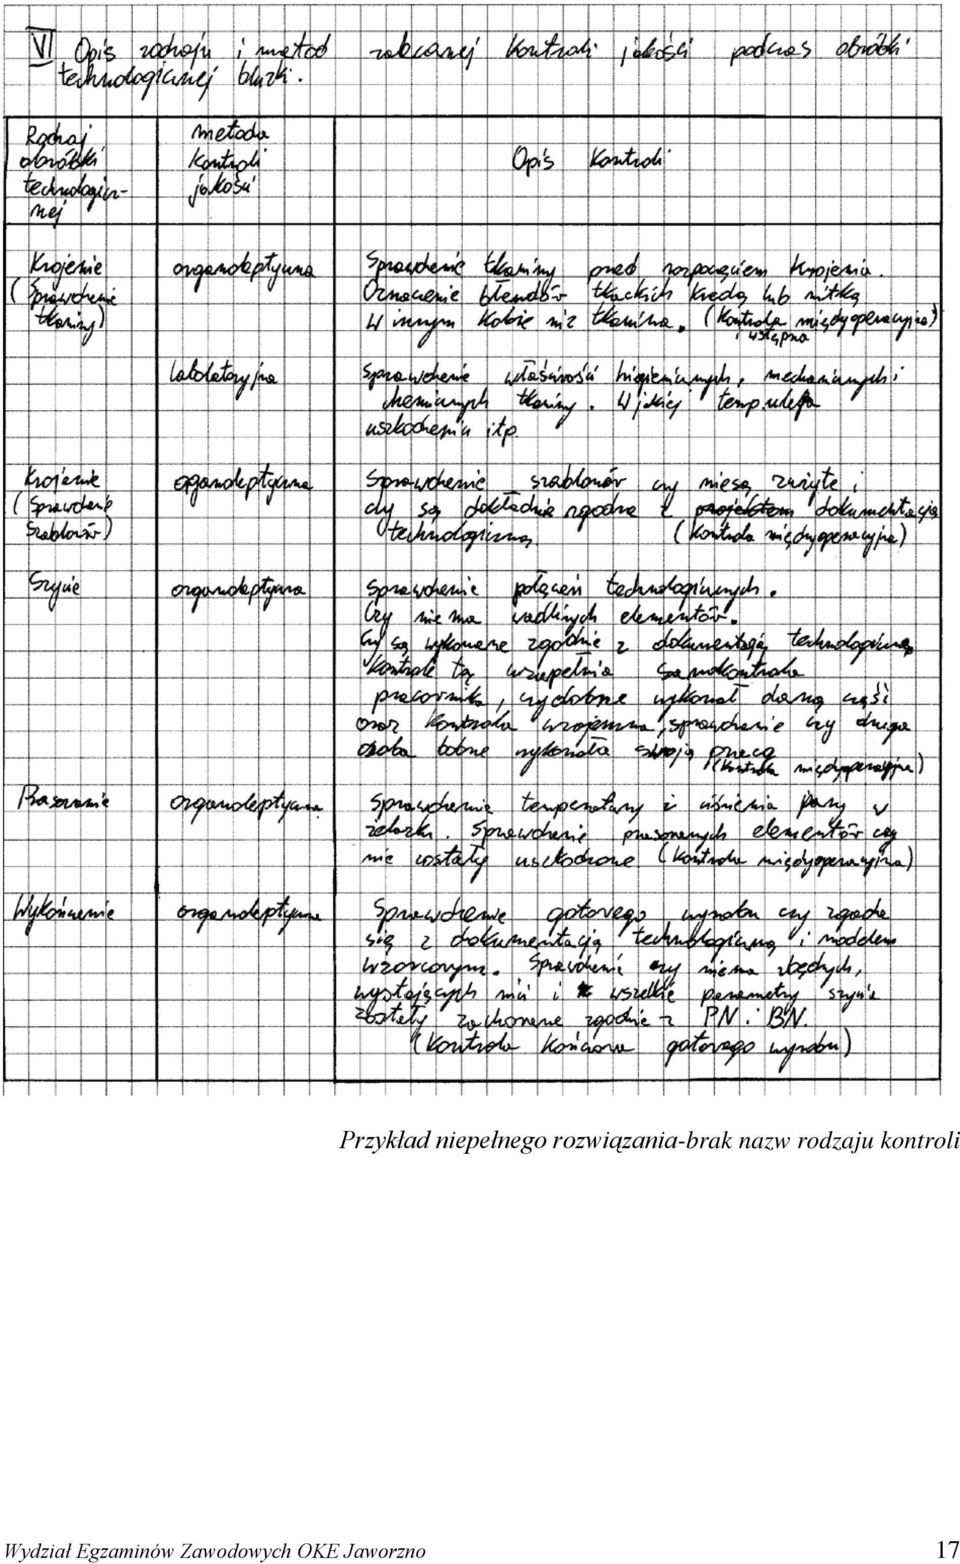 VI Opis rodzaju i metod zalecanej kontroli jakości podczas obróbki
technologicznej bluzki.
Rodzaj
obróbki
technologicz-
nej
metoda
kontroli
jakości
Opis kontroli
Krojenie
(Sprawdzenie
tkaniny)
organoleptyczna
Sprawdzenie tkaniny przed rozpoczęciem krojenia.
Oznaczenie błendów tkackich kredą lub nitką
w innym kolorze niż tkanina. (kontrola międzyoperacyjna)
i wstępna
laboratoryjna
Sprawdzenie właściwości higienicznych, mechanicznych i
chemicznych tkaniny. W jakiej temp. ulega
uszkodzeniu itp.
Krojenie
(Sprawdzenie
szablonów)
organoleptyczna
Sprawdzenie szablonów czy nie są zużyte i
czy są dokładnie zgodne z projektem dokumentacją
technologiczną. (kontrola międzyoperacyjna)
Szycie
organoleptyczna
Sprawdzenie połączeń technologicznych.
Czy nie ma wadliwych elementów.
Czy są wykonane zgodnie z dokumentacją technologiczną
Kontrolę tą uzupełnia samokontrola
pracownika, czy dobrze wykonał daną część
oraz kontrola wzajemna, sprawdzenie czy druga
osoba dobrze wykonała swoją pracę
(kontrola międzyoperacyjna)
Prasowanie
organoleptyczna
Sprawdzenie temperatury i ciśnienia pary w
żelazku. Sprawdzenie prasowanych elementów czy
nie zostały uszkodzone (kontrola międzyoperacyjna)
Wykończenie
organoleptyczna
Sprawdzenie gotowego wyrobu czy zgadza
się z dokumentacją technologiczną i modelem
wzorcowym. Sprawdzenie czy niema zbędnych,
wystających nici i wszelkie parametry szycia
zostały zachowane zgodnie z PN i BN.
(Kontrola końcowa gotowego wyrobu)
Przykład niepełnego rozwiązania-brak nazw rodzaju kontroli
Wydział Egzaminów Zawodowych OKE Jaworzno 17